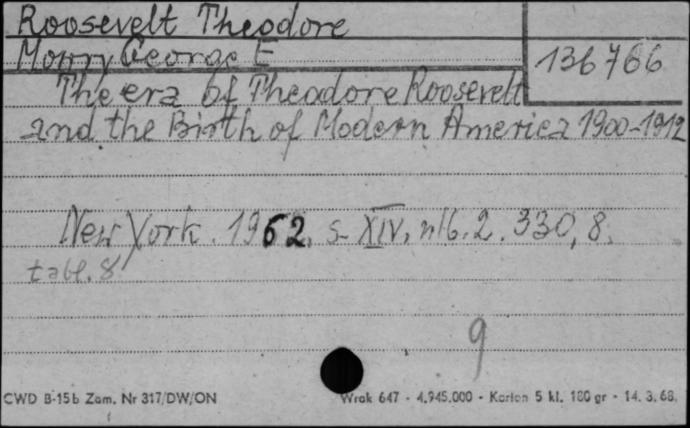 Roosevelt Theodore
Mowry George E
136766
The era of Theodore Roosevelt
and the Birth of Modern America 1900-1912
New York. 1962, s. XIV, nlb. 2. 330, 8,
tabl. 8
9
CWD B-15b Zam. Nr 317/DW/ON
Wrak 647 - 4.945.000 - Karton 5 kl. 180 gr - 14. 3. 68.